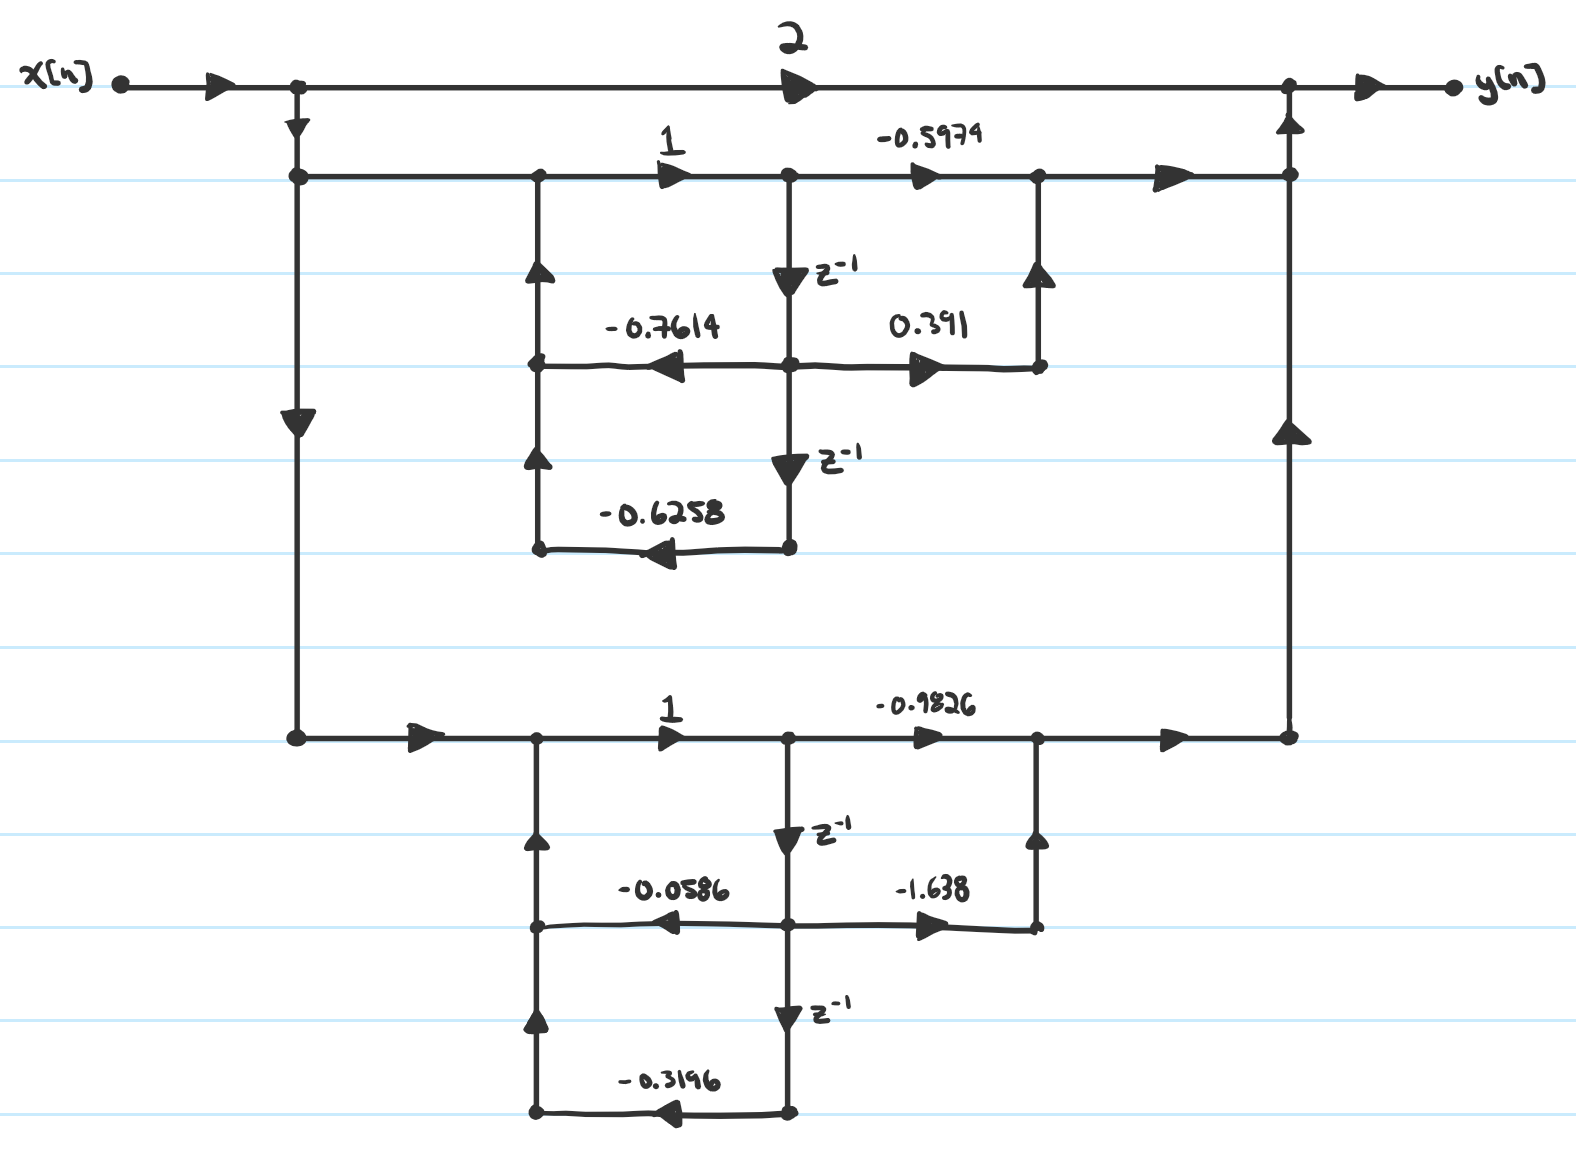 2
x[n]
y[n]
1
-0.5974
z⁻¹
-0.7614
0.391
z⁻¹
-0.6258
1
-0.9826
z⁻¹
-0.0586
-1.638
z⁻¹
-0.3196